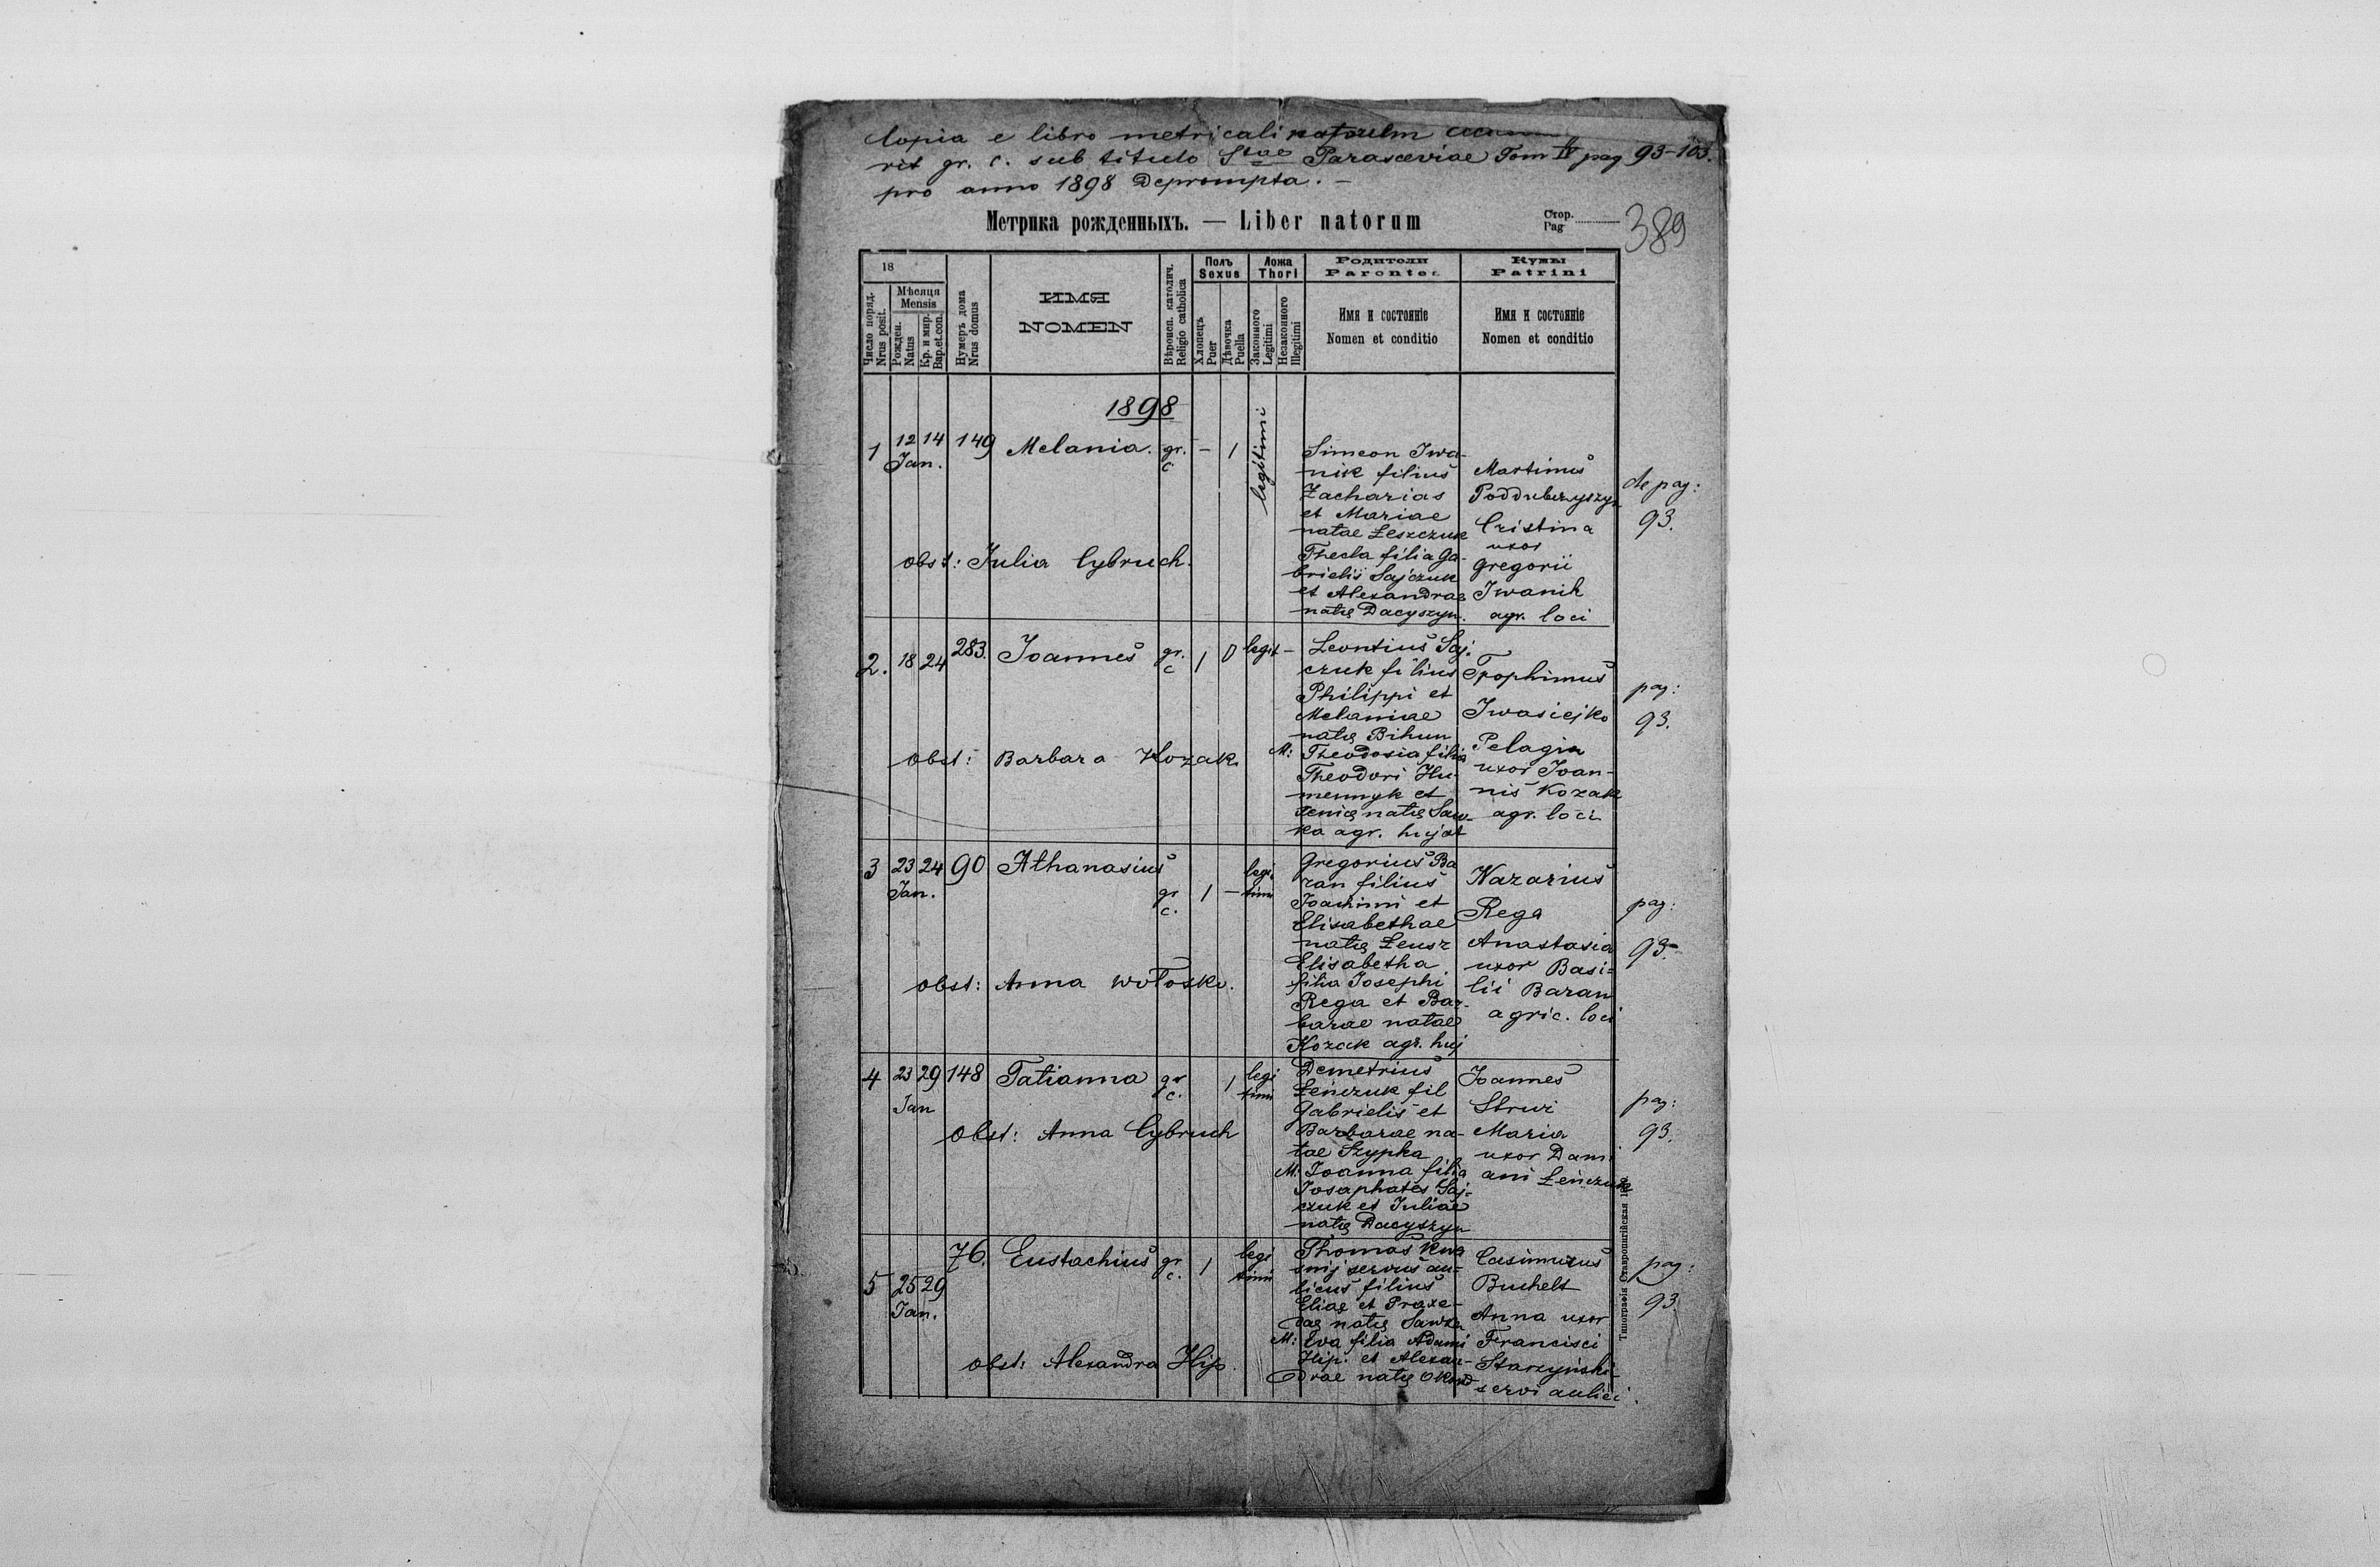 Copia e libro metricali natorum
rit gr. c. sub titulo Stae Parasceviae Tom IV pag 93-103.
pro anno 1898 Deprompta. -
Метрика рожденныхъ. — Liber natorum
Стор.
Pag
389
18
Число поряд.
Nrus posit.
Мѣсяця
Mensis
Рожден.
Natus
Кр. и мир.
Bap.et.con.
Нумеръ дома
Nrus domus
ИМЯ
NOMEN
Вѣроисп. католич.
Religio catholica
Полъ
Sexus
Хлопецъ
Puer
Дѣвочка
Puella
Ложа
Thori
Законного
Legitimi
Незаконного
Illegitimi
Родители
Parentes
Имя и состояніе
Nomen et conditio
Кумы
Patrini
Имя и состояніе
Nomen et conditio
1898
1 12 14 149 Melania. gr. - 1 legitimi
Jan. c
Simeon Iwa-
nik filius
Zacharias
et Mariae
natae Łeszczuk
Thecla filia Ga-
brielis Sajczuk
et Alexandrae
natę Dacyszyn.
Martinus
Cristina
uxor
Gregorii
Iwanik
agr. loci
de pag:
93.
obst: Julia Cybruch.
2. 18 24 283. Joannes gr. 1 0 legit -
c
Leontius Saj-
czuk filius
Philippi et
Melaniae
natę Bihun
M: Theodosia filia
Theodori Hu-
mennyk et
Xenię natę Saw-
ka agr. hujat
Trophimus
Iwasiejko
Pelagia
uxor Joan-
nis Kozak
agr. loci
pag:
93.
obst: Barbara Kozak
3 23 24 90 Athanasius gr 1 - legi
Jan. c. timi
Gregorius Ba
ran filius
Joachimi et
Elisabethae
natę Łeusz
Elisabetha
filia Josephi
Rega et Bar-
barae natae
Kozak agr. huj
Nazarius
Rega
Anastasia
uxor Basi-
lii Baran
agric. loci
pag:
93-
obst: Anna Wołosko.
4 23 29 148 Tatianna gr 1 legi
Jan c. timi
Demetrius
Łeńczuk fil
Gabrielis et
Barbarae na-
tae Szypka
M: Joanna filia
Josaphates Saj-
czuk et Juliae
natę Dacyszyn
Joannes
Maria
uxor Dami
ani Łeńczuk
pag:
93.
obst: Anna Cybruch
5 25 29 76. Eustachius gr 1 legi
Jan. c. timi
Thomas Kwa
śnij servus au-
licus filius
Elię et Praxe-
dae natę Sawka
M: Eva filia Adami
Hip. et Alexan-
drae natę
Casimirus
Buchelt
Anna uxor
Francisci
Starzyński
servi aulici.
pag:
93
obst: Alexandra Hip.
Типографія Ставропигійская